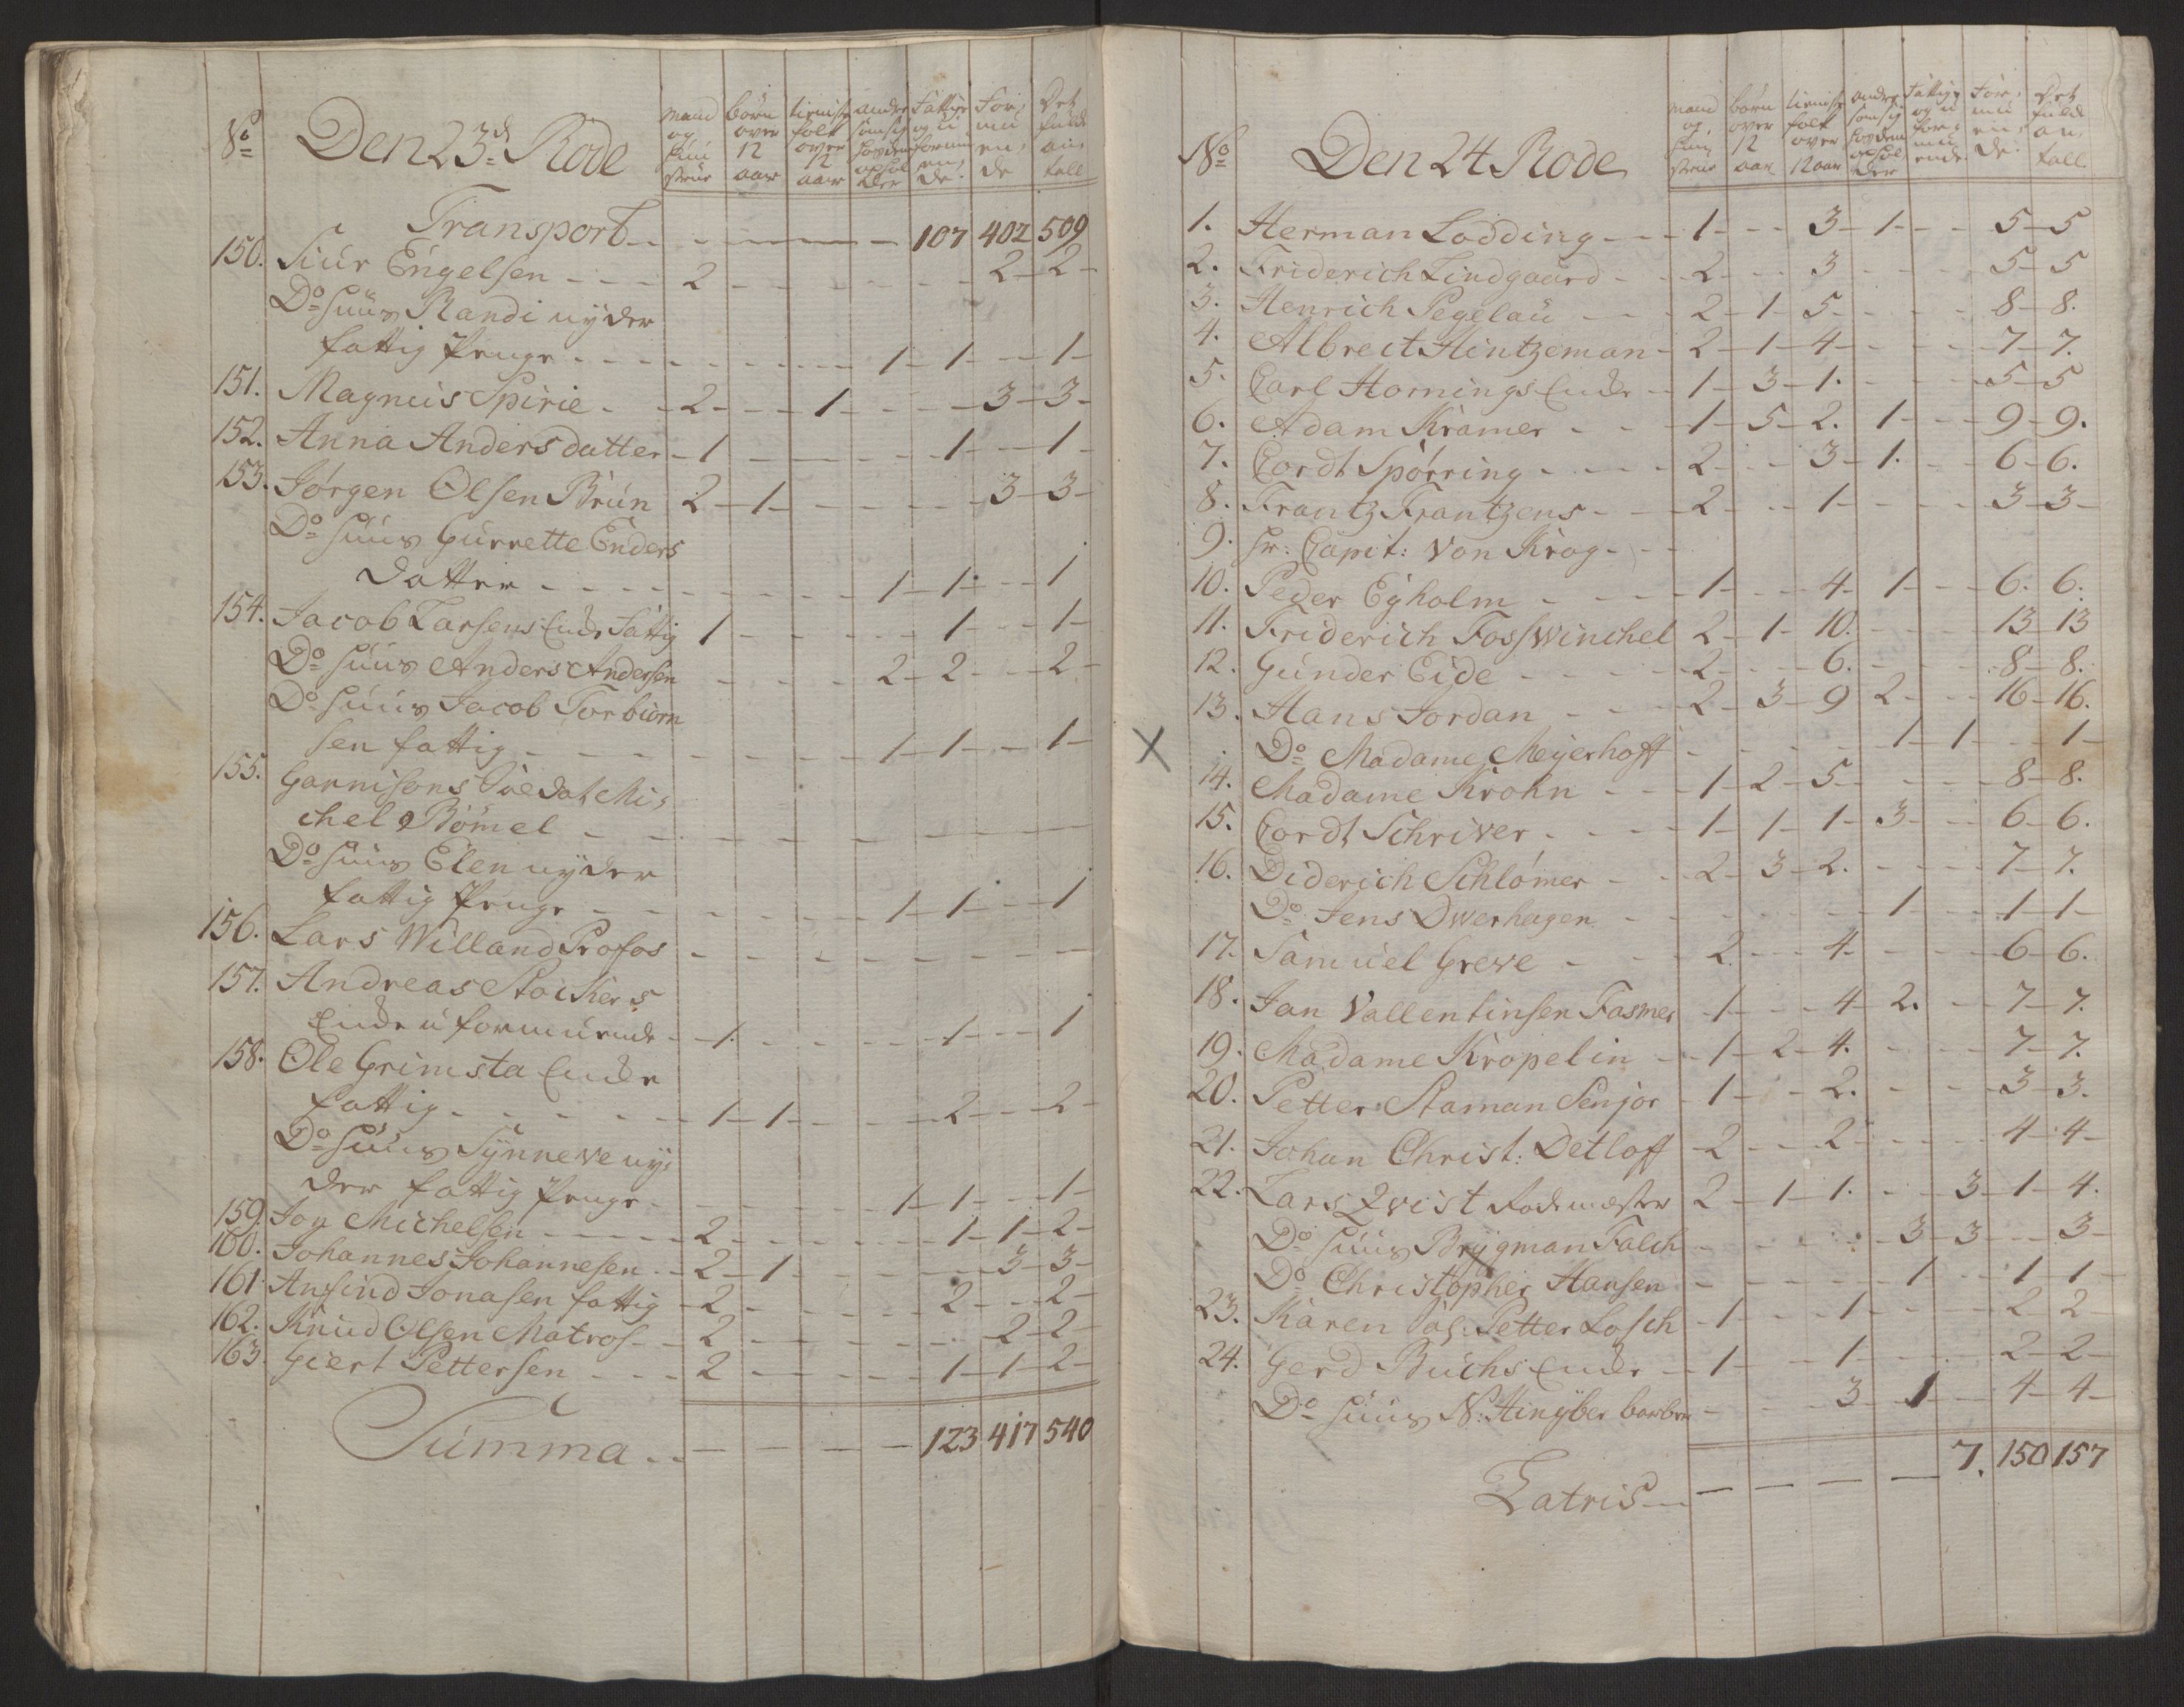 No Den 23d Rode mand og hustrue børn over 12 aar tieniste folk over 12 aar andre som sig hos dem opholder fattige og uformuende formuende Det fulde antall
Transport 107 402 509
150. Siur Engelsen 2 2 2
Do huus Randi nyder
fattig Penge 1 1 1
151. Magnus Spirie 2 1 3 3
152. Anna Andersdatter 1 1 1
153. Jørgen Olsen Brun 2 1 3 3
Do huus Gurrette Enders
datter 1 1 1
154. Jacob Larsens Enke fattig 1 1 1
Do huus Anders Andersen 2 2 2
Do huus Jacob Torbiørn
sen fattig 1 1 1
155. Garnisons Soldat Mi,
chel Bömel
Do huus Elen nyder
fattig Penge 1 1 1
156. Lars Willand Profos
157. Andreas Stockers
Enke uformuende 1 1 1
158. Ole Grimsta Enke
fattig 1 1 2 2
Do huus Synneve ny,
der fattig Penge 1 1 1
159. Joy Michelsen 2 1 1 2
160. Johannes Johannesen 2 1 3 3
161 Ansind Jonasen fattig 2 2 2
162. Knud Olsen Matros 2 2 2
163. Giert Pettersen 2 1 1 2
Summa 123 417 540
No Den 24 Rode mand og hustrue børn over 12 aar tieniste folk over 12 aar andre som sig hos dem opholder fattige og uformuende formuende Det fulde antall
1. Herman Lodding 1 3 1 5 5
2. Friderich Lindgaard 2 3 5 5
3. Henrich Pegelau 2 1 5 8 8.
4. Albrect Hintzeman 2 1 4 7 7.
5. Carl Hornings Enke 1 3 1. 5 5
6. Adam Kramer 1 5 2. 1 9 9.
7. Cordt Spörring 2 3 1. 6 6.
8. Frantz Frantzens 2 1 3 3
9. Hr: Capit: Von Krog
10. Peder Egholm 1 4 1 6. 6.
11. Friderich Fosswinchel 2 1 10. 13 13
12. Gunder Eide 2 6. 8 8.
13. Hans Jordan 2 3 9 2 16 16.
X Do Madame Meyerhoff 1 1 1
14. Madame Krohn 1 2 5 8 8.
15. Cordt Schriver 1 1 1 3 6 6.
16. Diderich Schlömer 2 3 2. 7 7.
Do Jens Dwerhagen 1 1 1
17. Samuel Greve 2. 4 6 6.
18. Jan Vallentinsen Fasmer 1 4 2. 7 7.
19. Madame Kropelin 1 2 4. 7 7.
20. Petter Staman Senjor 1 2. 3 3.
21. Johan Christ: Detloff 2 2 4 4
22. Lars Qvist Rodemester 2 1 1. 3 1 4.
Do huus Brygman Falch 3 3 3
Do Christopher Hansen 1 1 1
23. Karen Sal: Petter Losch 1 1 2 2
24. Gerd Buchs Enke 1 1 2 2
Do huus N: Hinyber 3 1 4 4
Latris 7. 150 157